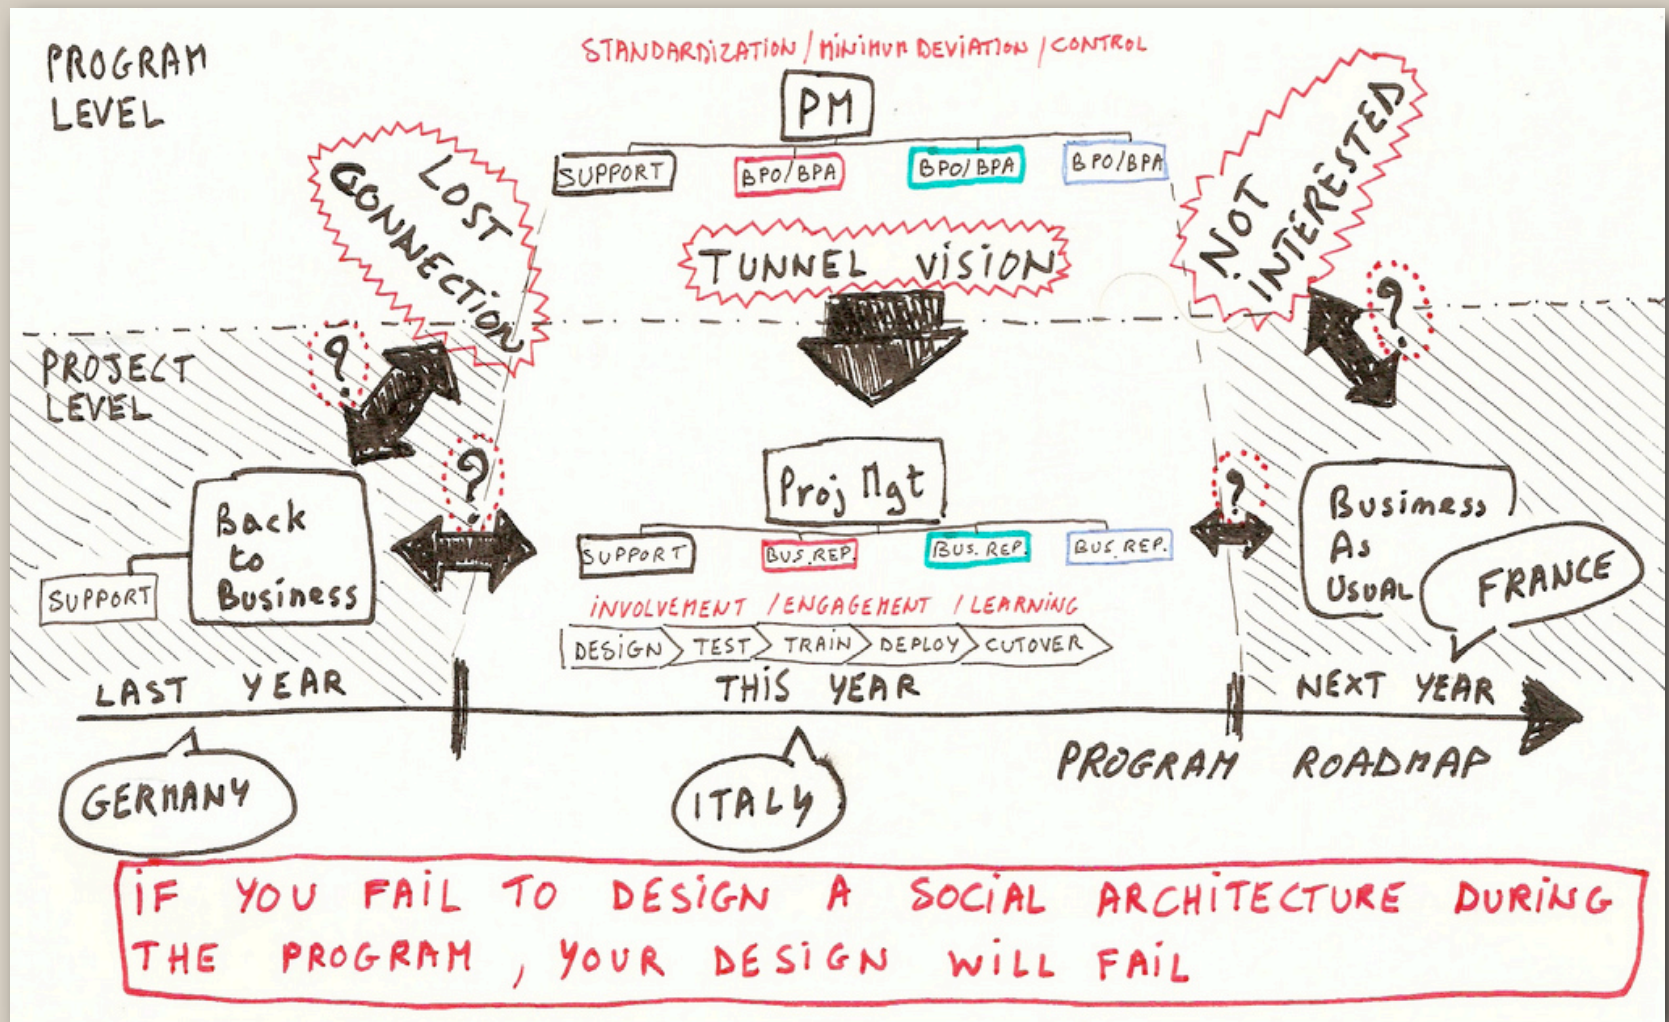 PROGRAM
LEVEL
STANDARDIZATION / MINIMUM DEVIATION / CONTROL
PM
SUPPORT
BPO/BPA
BPO/BPA
BPO/BPA
LOST
CONNECTION
TUNNEL VISION
NOT
INTERESTED
?
?
PROJECT
LEVEL
?
?
Proj Mgt
SUPPORT
BUS.REP.
BUS.REP.
BUS.REP.
Back
to
Business
SUPPORT
Business
As
Usual
FRANCE
INVOLVEMENT / ENGAGEMENT / LEARNING
DESIGN
TEST
TRAIN
DEPLOY
CUTOVER
LAST YEAR
THIS YEAR
NEXT YEAR
PROGRAM ROADMAP
GERMANY
ITALY
IF YOU FAIL TO DESIGN A SOCIAL ARCHITECTURE DURING
THE PROGRAM, YOUR DESIGN WILL FAIL